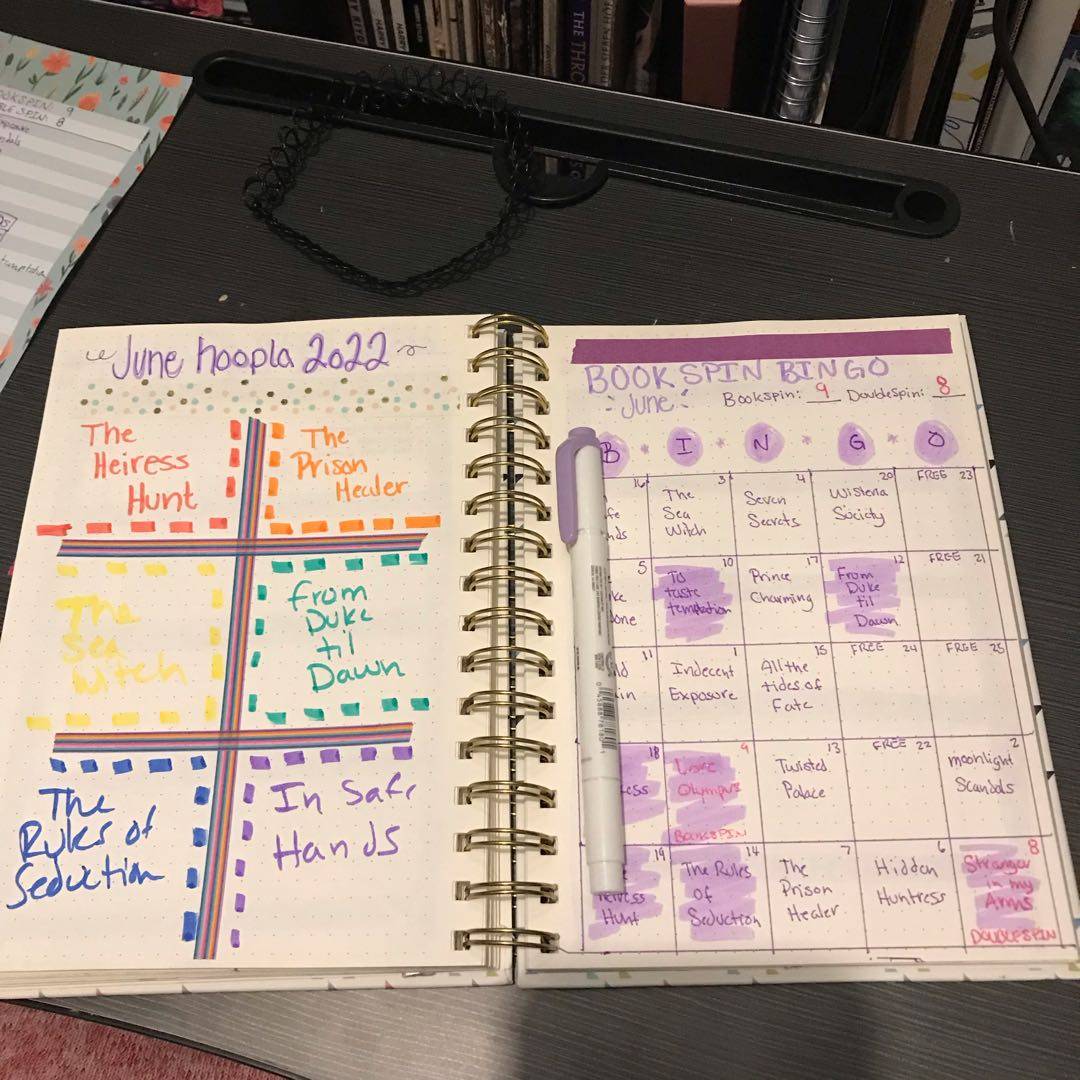 June hoopla 2022
The
Heiress
Hunt
The
Prison
Healer
The
Sea
Witch
From
Duke
til
Dawn
The
Rules of
Seduction
In Safe
Hands
BOOKSPIN BINGO
June
Bookspin: 9 Doublespin: 8
B I N G O
16
3
The
Sea
Witch
4
Seven
Secrets
20
Wisteria
Society
FREE 23
5
10
To
taste
temptation
17
Prince
Charming
12
From
Duke
til
Dawn
FREE 21
11
1
Indecent
Exposure
15
All the
tides of
Fate
FREE 24
FREE 25
18
9
Lore
Olympus
BOOKSPIN
13
Twisted
Palace
FREE 22
2
moonlight
Scandals
19
Heiress
Hunt
14
The Rules
of
Seduction
7
The
Prison
Healer
6
Hidden
Huntress
8
Stranger
in my
Arms
DOUBLESPIN
BOOKSPIN: 9
8
THE THRO
HARRY